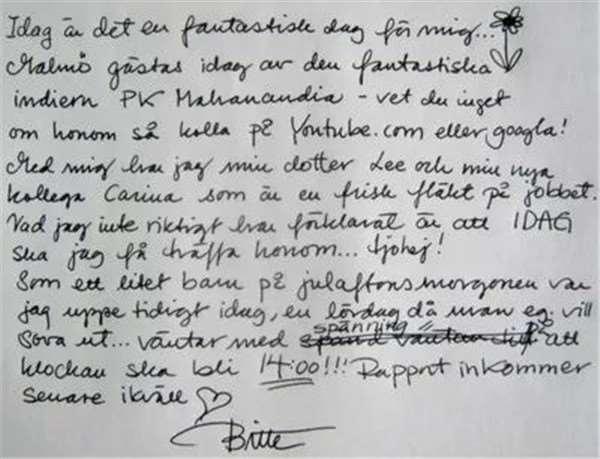 Idag är det en fantastisk dag för mig...
Malmö gästas idag av den fantastiska
indiern PK Mahanandia - vet du inget
om honom så kolla på Youtube.com eller googla!
Med mig har jag min dotter Lee och min nya
kollega Carina som är en frisk fläkt på jobbet.
Vad jag inte riktigt har förklarat är att IDAG
ska jag få träffa honom... tjohej!
Som ett litet barn på julaftonsmorgonen var
jag uppe tidigt idag, en lördag då man eg. vill
sova ut... väntar med spänning på att
klockan ska bli 14:00!!! Rapport inkommer
senare ikväll
Bitte